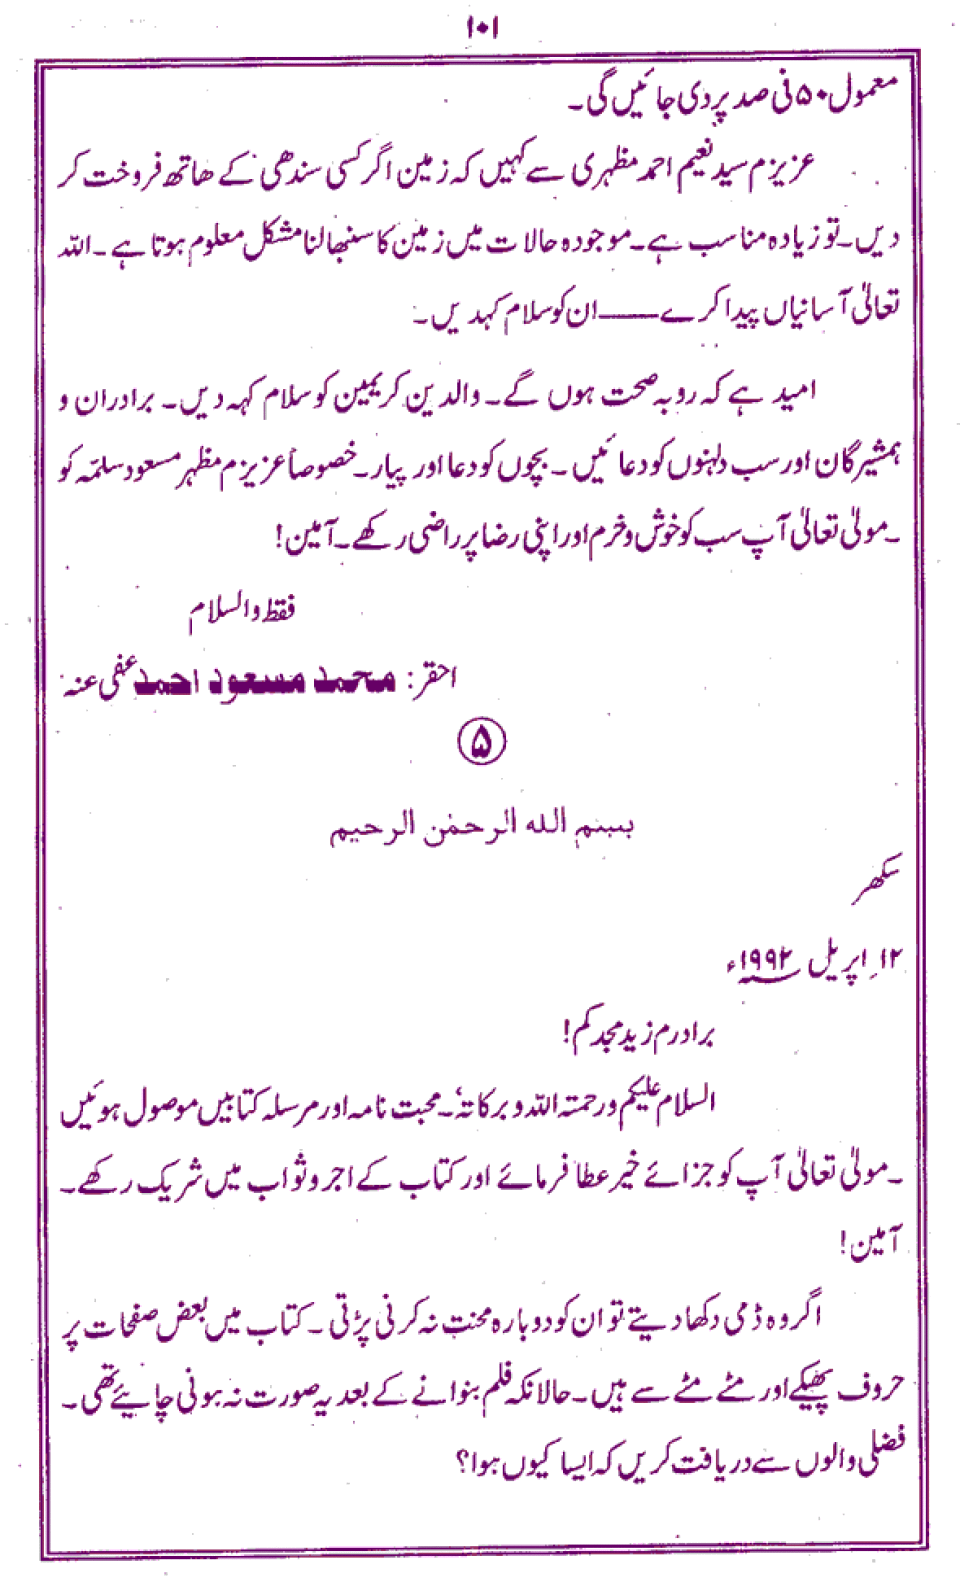 ۱۰۱
معمول ۵۰ فی صد پر دی جائیں گی۔
عزیزم سید نعیم احمد مظہری سے کہیں کہ زمین اگر کسی سندھی کے ھاتھ فروخت کر
دیں۔ تو زیادہ مناسب ہے۔ موجودہ حالات میں زمین کا سنبھالنا مشکل معلوم ہوتا ہے۔ اللہ
تعالیٰ آسانیاں پیدا کرے——ان کو سلام کہدیں۔
امید ہے کہ روبہ صحت ہوں گے۔ والدین کریمین کو سلام کہہ دیں۔ برادران و
ہمشیرگان اور سب دلہنوں کو دعائیں۔ بچوں کو دعا اور پیار۔ خصوصاً عزیزم مظہر مسعود سلمہٗ کو
۔ مولیٰ تعالیٰ آپ سب کو خوش و خرم اور اپنی رضا پر راضی رکھے۔ آمین!
فقط والسلام
احقر: محمد مسعود احمد عفی عنہ
۵
بسم الله الرحمٰن الرحیم
سکھر
۱۲؍ اپریل ۱۹۹۲ء
برادرم زید مجدکم!
السلام علیکم ورحمتہ اللہ وبرکاتہٗ۔ محبت نامہ اور مرسلہ کتابیں موصول ہوئیں
۔ مولیٰ تعالیٰ آپ کو جزائے خیر عطا فرمائے اور کتاب کے اجر و ثواب میں شریک رکھے۔
آمین!
اگر وہ ڈمی دکھا دیتے تو ان کو دوبارہ محنت نہ کرنی پڑتی۔ کتاب میں بعض صفحات پر
حروف پھیکے اور مٹے مٹے سے ہیں۔ حالانکہ فلم بنوانے کے بعد یہ صورت نہ ہونی چاہیئے تھی۔
فضلی والوں سے دریافت کریں کہ ایسا کیوں ہوا؟